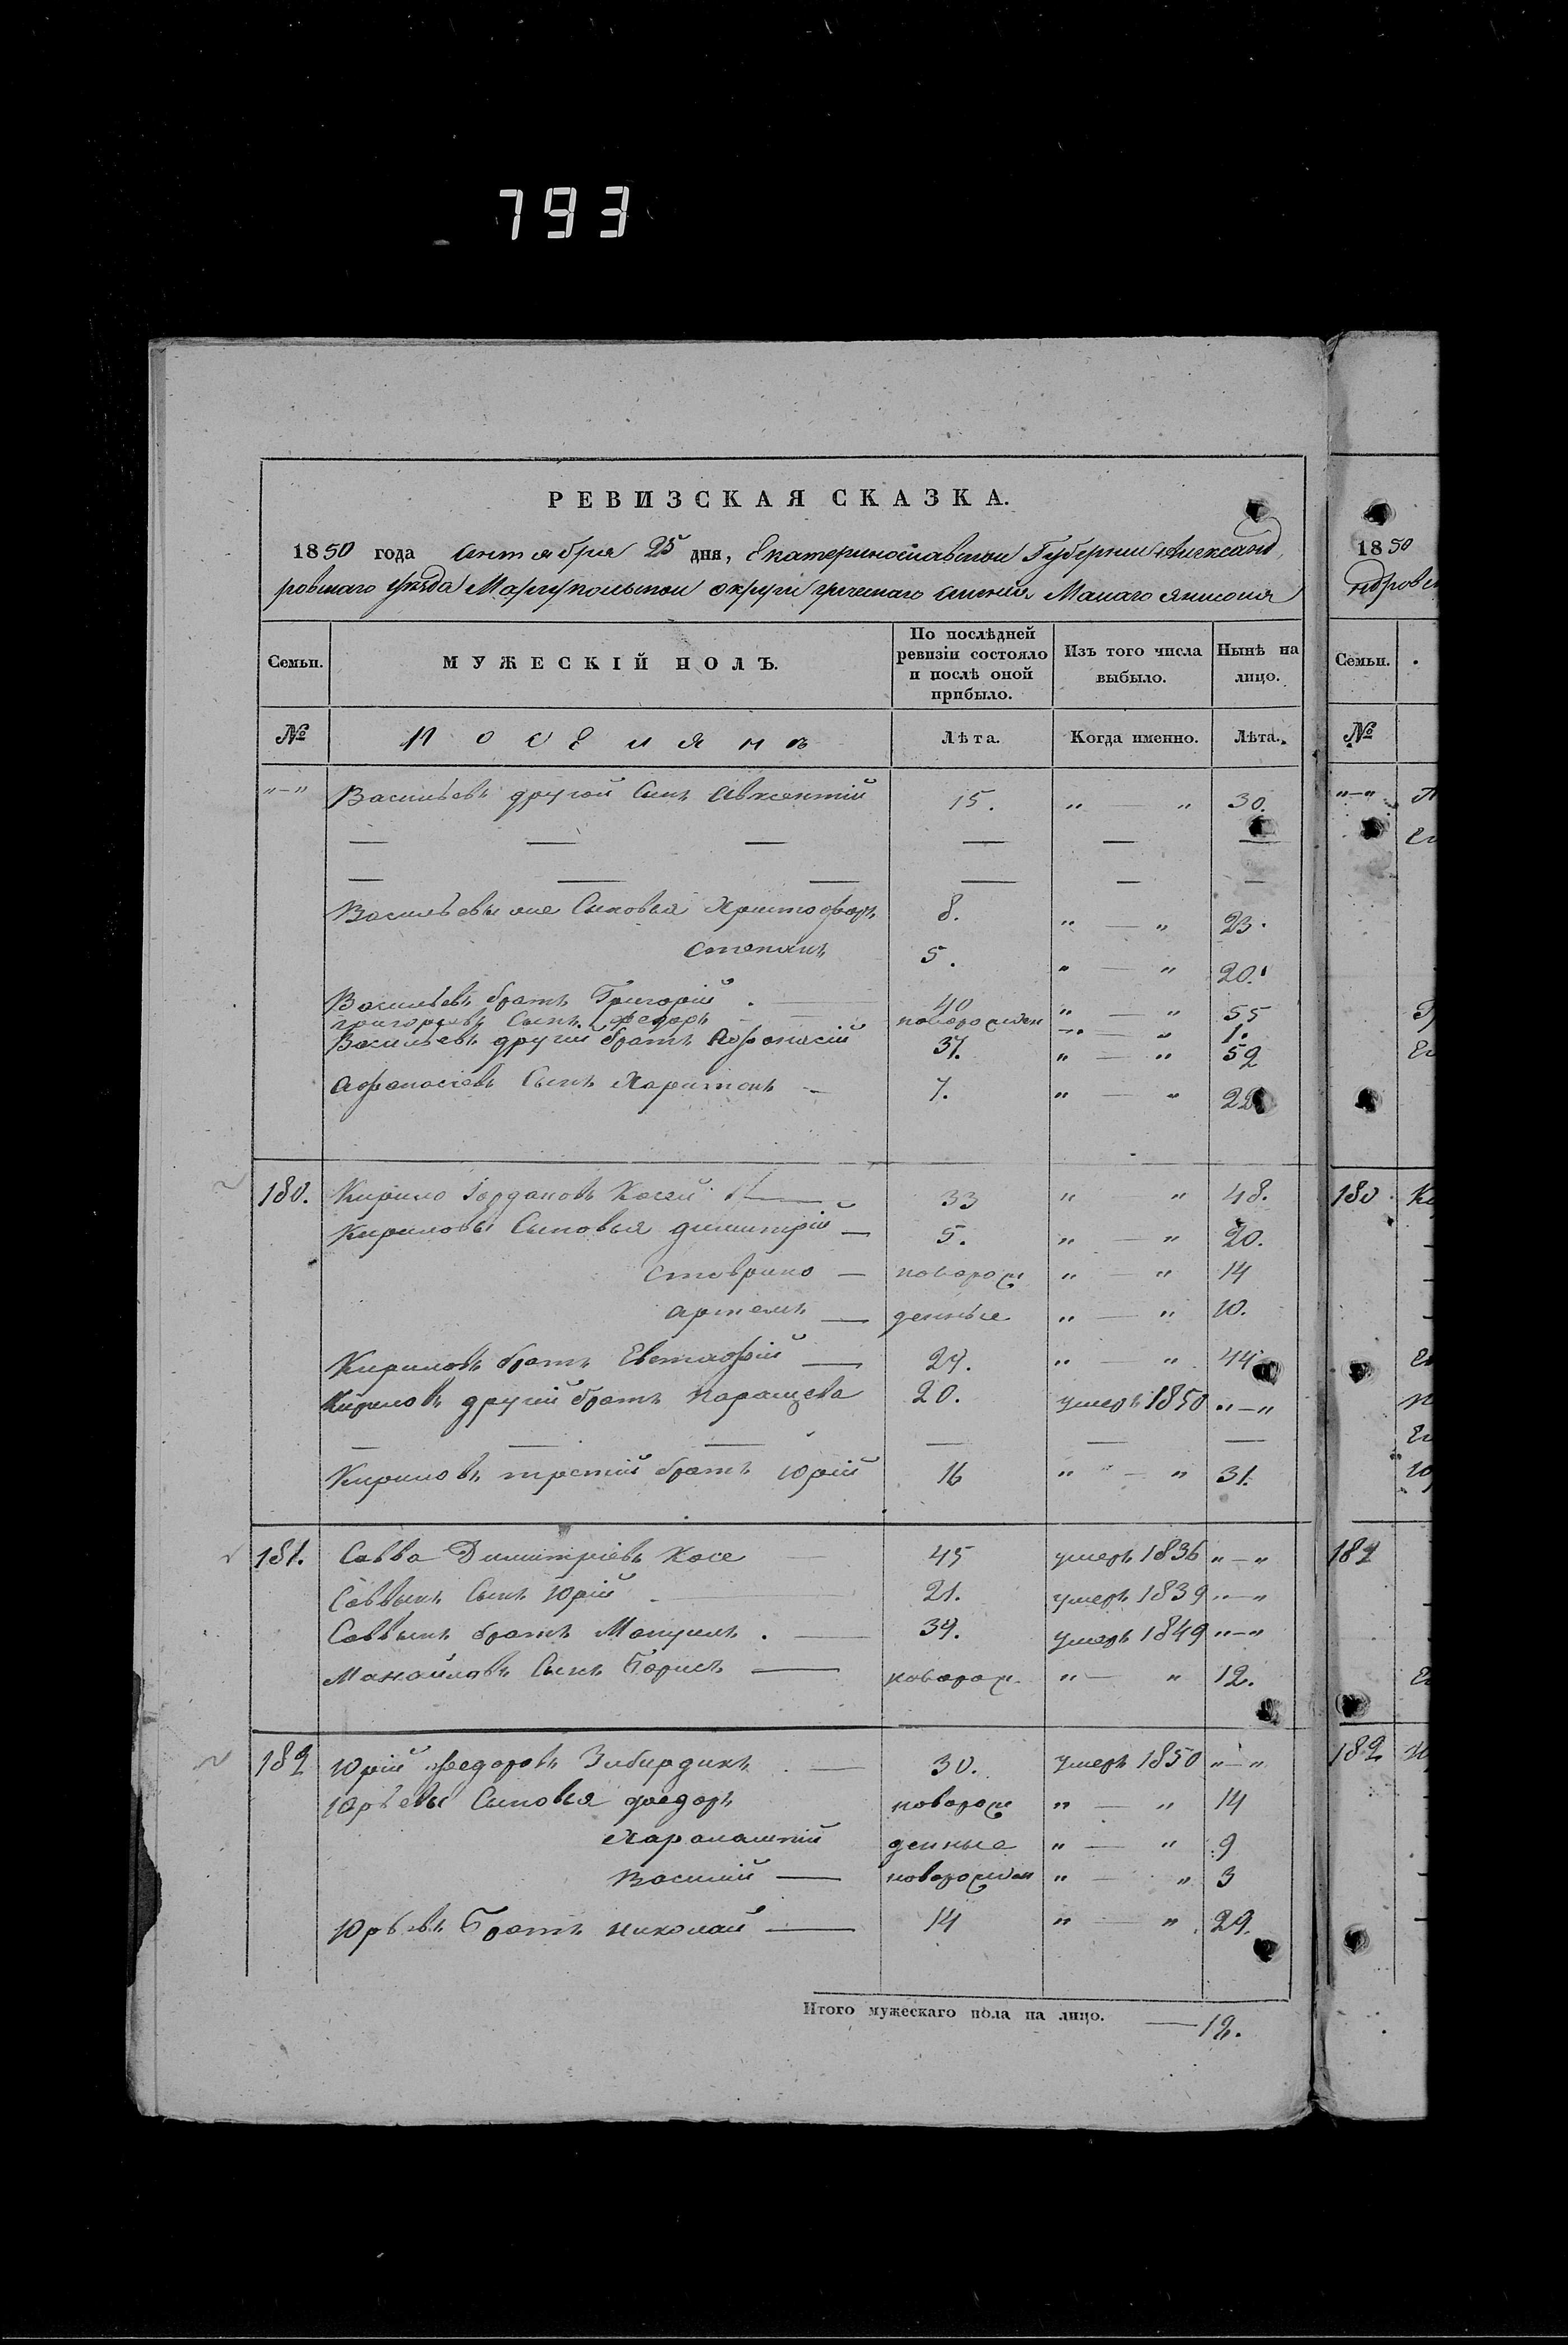 793
РЕВИЗСКАЯ СКАЗКА.
1850 года октября 25 дня, Екатеринославской Губернии Александ
ровскаго уѣзда Мариупольской округи греческаго селения Малаго Янисоля
Семьи. МУЖЕСКІЙ ПОЛЪ. По послѣдней ревизіи состояло и послѣ оной прибыло. Изъ того числа выбыло. Нынѣ на лицо.
№ Поселянъ Лѣта. Когда именно. Лѣта.
"—" Васильевъ другой Сынъ Авксентій 15. " — " 30.
— — — — — —
— — — — — —
Васильевы же Сыновья Христофоръ 8. " — " 23.
Степанъ 5. " — " 20.
Васильевъ братъ Григорій . — 40 " — " 55
Григорьевъ Сынъ Федоръ — новорожден " — " 1.
Васильевъ другій братъ Афонасій 37. " — " 52
Афонасіевъ Сынъ Харитонъ — 7. " — " 22
180. Кирило Іордановъ Косей — 33 " " 48.
Кириловы Сыновья димитрій — 5. " — " 20.
Ставрино — новорож " — " 14
артемъ — денные " — " 10.
Кириловъ братъ Евстафій — 29. " — " 44
Кириловъ другій братъ Паращева 20. умеръ 1850 "—"
— — — — — —
Кириловъ третій братъ Юрій 16 " — " 31.
181. Савва Димитріевъ Косе — 45 умеръ 1836 "—"
Саввынъ Сынъ Юрій . — 21. умеръ 1839 "—"
Саввынъ братъ Мануилъ . — 39. умеръ 1849 "—"
Манойловъ Сынъ Борисъ — новорож. " — " 12.
182 Юрій Федоровъ . — 30. умеръ 1850 "—"
Юрьевы Сыновья Федоръ новорож " — " 14
Харалампій денные " — " 9
Василий — новорожден " — " 3
Юрьевъ Братъ Николай — 14 " — " 29.
Итого мужескаго пола на лицо. — 12.
1850
ндровск
Семьи.
№
"—"
180
182